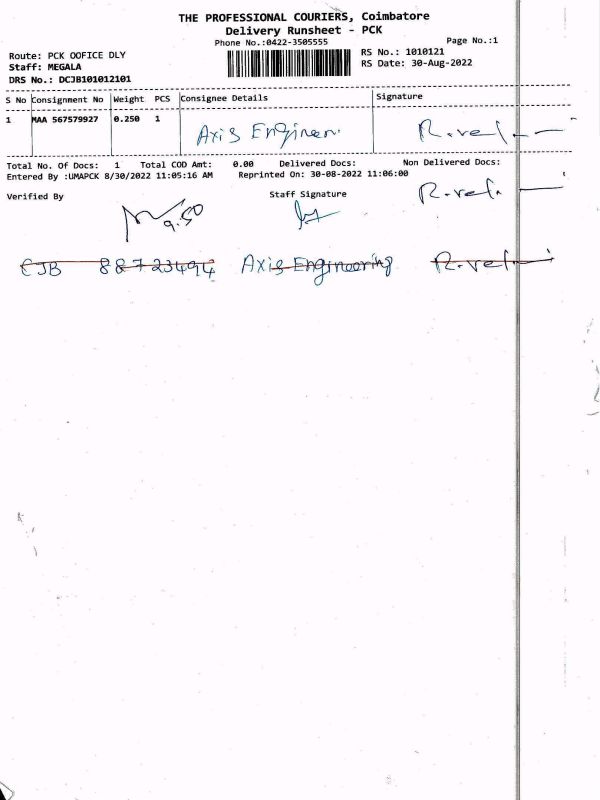 THE PROFESSIONAL COURIERS, Coimbatore
Delivery Runsheet - PCK
Phone No.:0422-3505555
Page No.:1
Route: PCK OOFICE DLY
RS No.: 1010121
Staff: MEGALA
RS Date: 30-Aug-2022
DRS No.: DCJB101012101
S No Consignment No Weight PCS Consignee Details Signature
1 MAA 567579927 0.250 1 Axis Engineer. R.vel
Total No. Of Docs: 1 Total COD Amt: 0.00 Delivered Docs: Non Delivered Docs:
Entered By :UMAPCK 8/30/2022 11:05:16 AM Reprinted On: 30-08-2022 11:06:00
Verified By Staff Signature R.vel.
9.50
CJB 88723494 Axis Engineering R.vel